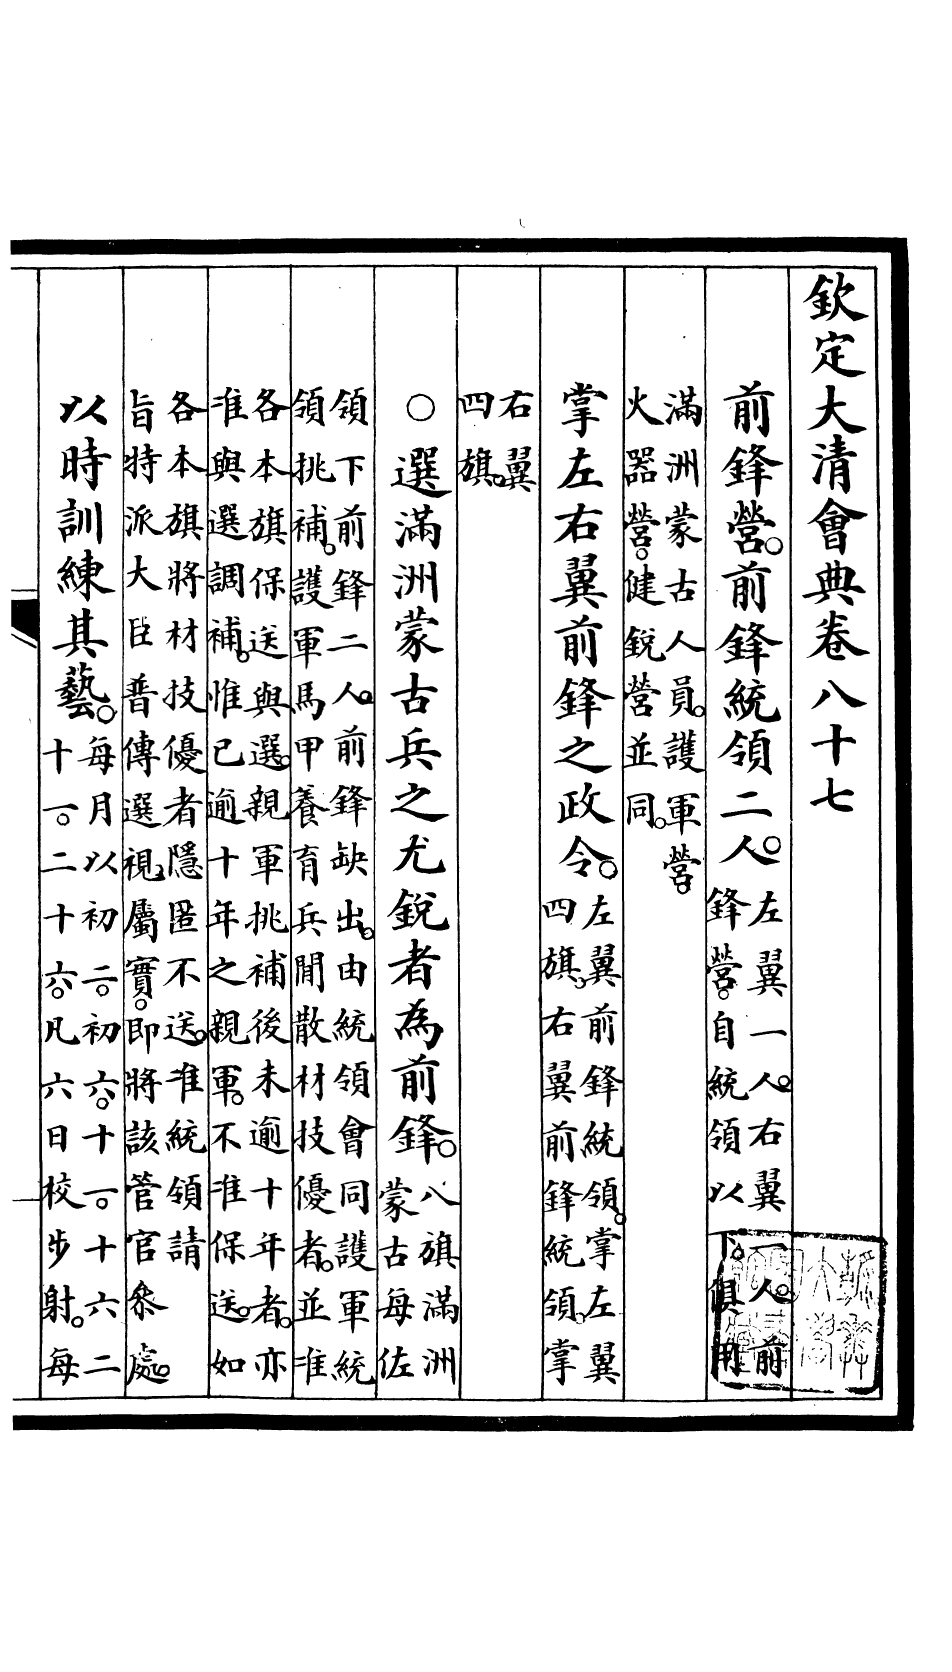 欽定大清會典卷八十七
前鋒營。前鋒統領二人。左翼一人。右翼一人。前
鋒營。自統領以下。俱用
滿洲蒙古人員。護軍營。
火器營。健銳營並同。
掌左右翼前鋒之政令。左翼前鋒統領。掌左翼
四旗。右翼前鋒統領。掌
右翼
四旗。
○選滿洲蒙古兵之尤銳者為前鋒。八旗滿洲
蒙古每佐
領下前鋒二人。前鋒缺出。由統領會同護軍統
領挑補。護軍馬甲養育兵閒散材技優者。並准
各本旗保送與選。親軍挑補後未逾十年者。亦
准與選調補。惟已逾十年之親軍。不准保送。如
各本旗將材技優者隱匿不送。准統領請
旨特派大臣普傳選視。屬實。即將該管官叅處。
以時訓練其藝。每月以初二。初六。十一。十六二
十一。二十六。凡六日校步射。每